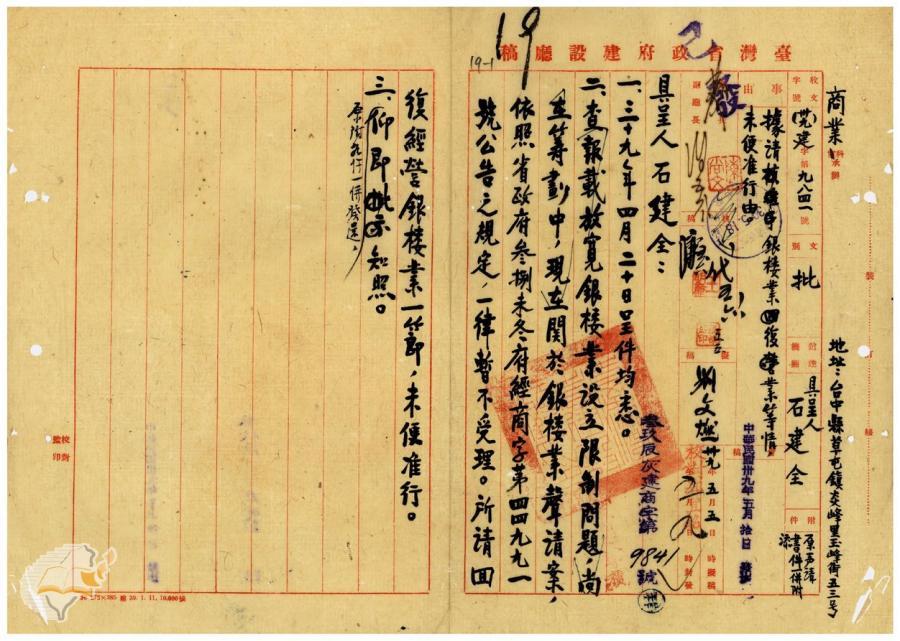 19
19-1
臺灣省政府建設廳稿
商業科承辦
地址：台中縣草屯鎮炎峰里玉峰街五三号
收文字號
建字第九八四一號
文別
批
具呈人
石建全
附件
事由
據請核准銀楼業回復營業等情
未便准行由。
中華民國卅九年五月拾日
副廳長
卅九年五月五日
時擬稿
叁玖辰灰建商字第9841號
具呈人石建全：
一、三十九年四月二十日呈件均悉。
二、查報載放寬銀楼業设立限制問題，尚
在籌劃中，現在関於銀楼業聲请案，
依照省政府叁捌未冬府經商字第四四九九一
號公告之規定，一律暫不受理。所请回
復經營銀楼業一節，未便准行。
三、仰即批示知照。
原附九件一併發还。
校對
監印